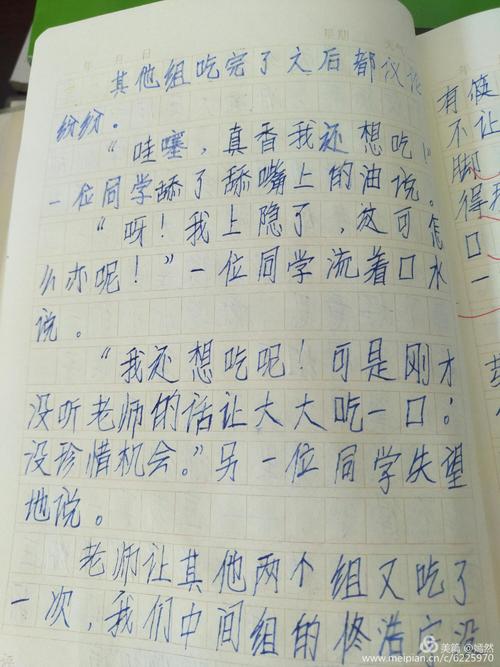 年 月 日 星期 天气
其他组吃完了之后都议论
纷纷。
“哇噻，真香我还想吃！”
一位同学舔了舔嘴上的油说。
“呀！我上隐了，这可怎
么办呢！”一位同学流着口水
说。
“我还想吃呢！可是刚才
没听老师的话让大大吃一口，
没珍惜机会。”另一位同学失望
地说。
老师让其他两个组又吃了
一次，我们中间组的佟浩宇没
有筷
不让
脚
得
口
一
美篇 @嫣然
www.meipian.cn/c/6225970